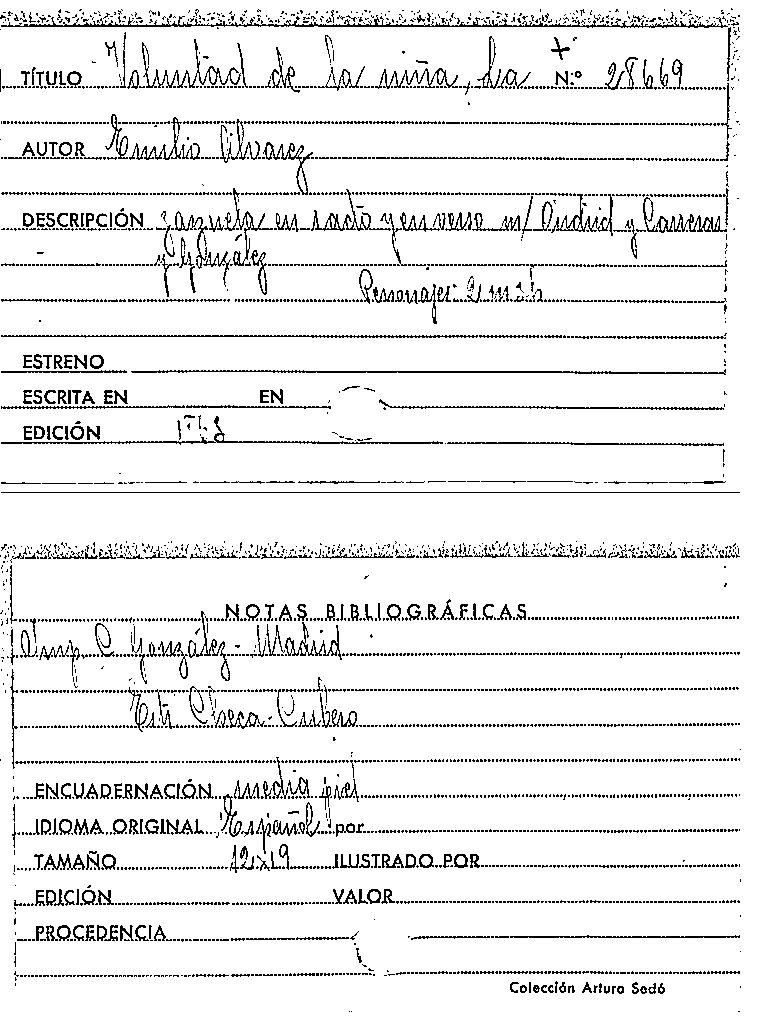 TÍTULO Voluntad de la niña, La N.º 28669
AUTOR Emilio Alvarez
DESCRIPCIÓN zarzuela en 1 acto y en verso m/ Oudrid y Carreras
y González
Personajes: 2 m 3 h
ESTRENO
ESCRITA EN EN
EDICIÓN
NOTAS BIBLIOGRÁFICAS
Imp. C. González - Madrid
Checa - Cubero
ENCUADERNACIÓN media piel
IDIOMA ORIGINAL Español por
TAMAÑO 12x19 ILUSTRADO POR
EDICIÓN VALOR
PROCEDENCIA
Colección Arturo Sedó